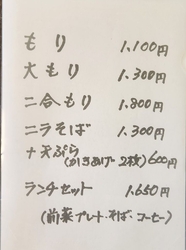 もり 1,100円
大もり 1,300円
二合もり 1,800円
ニラそば 1,300円
+天ぷら(かきあげ2枚)600円
ランチセット 1,650円
(前菜プレート・そば・コーヒー)